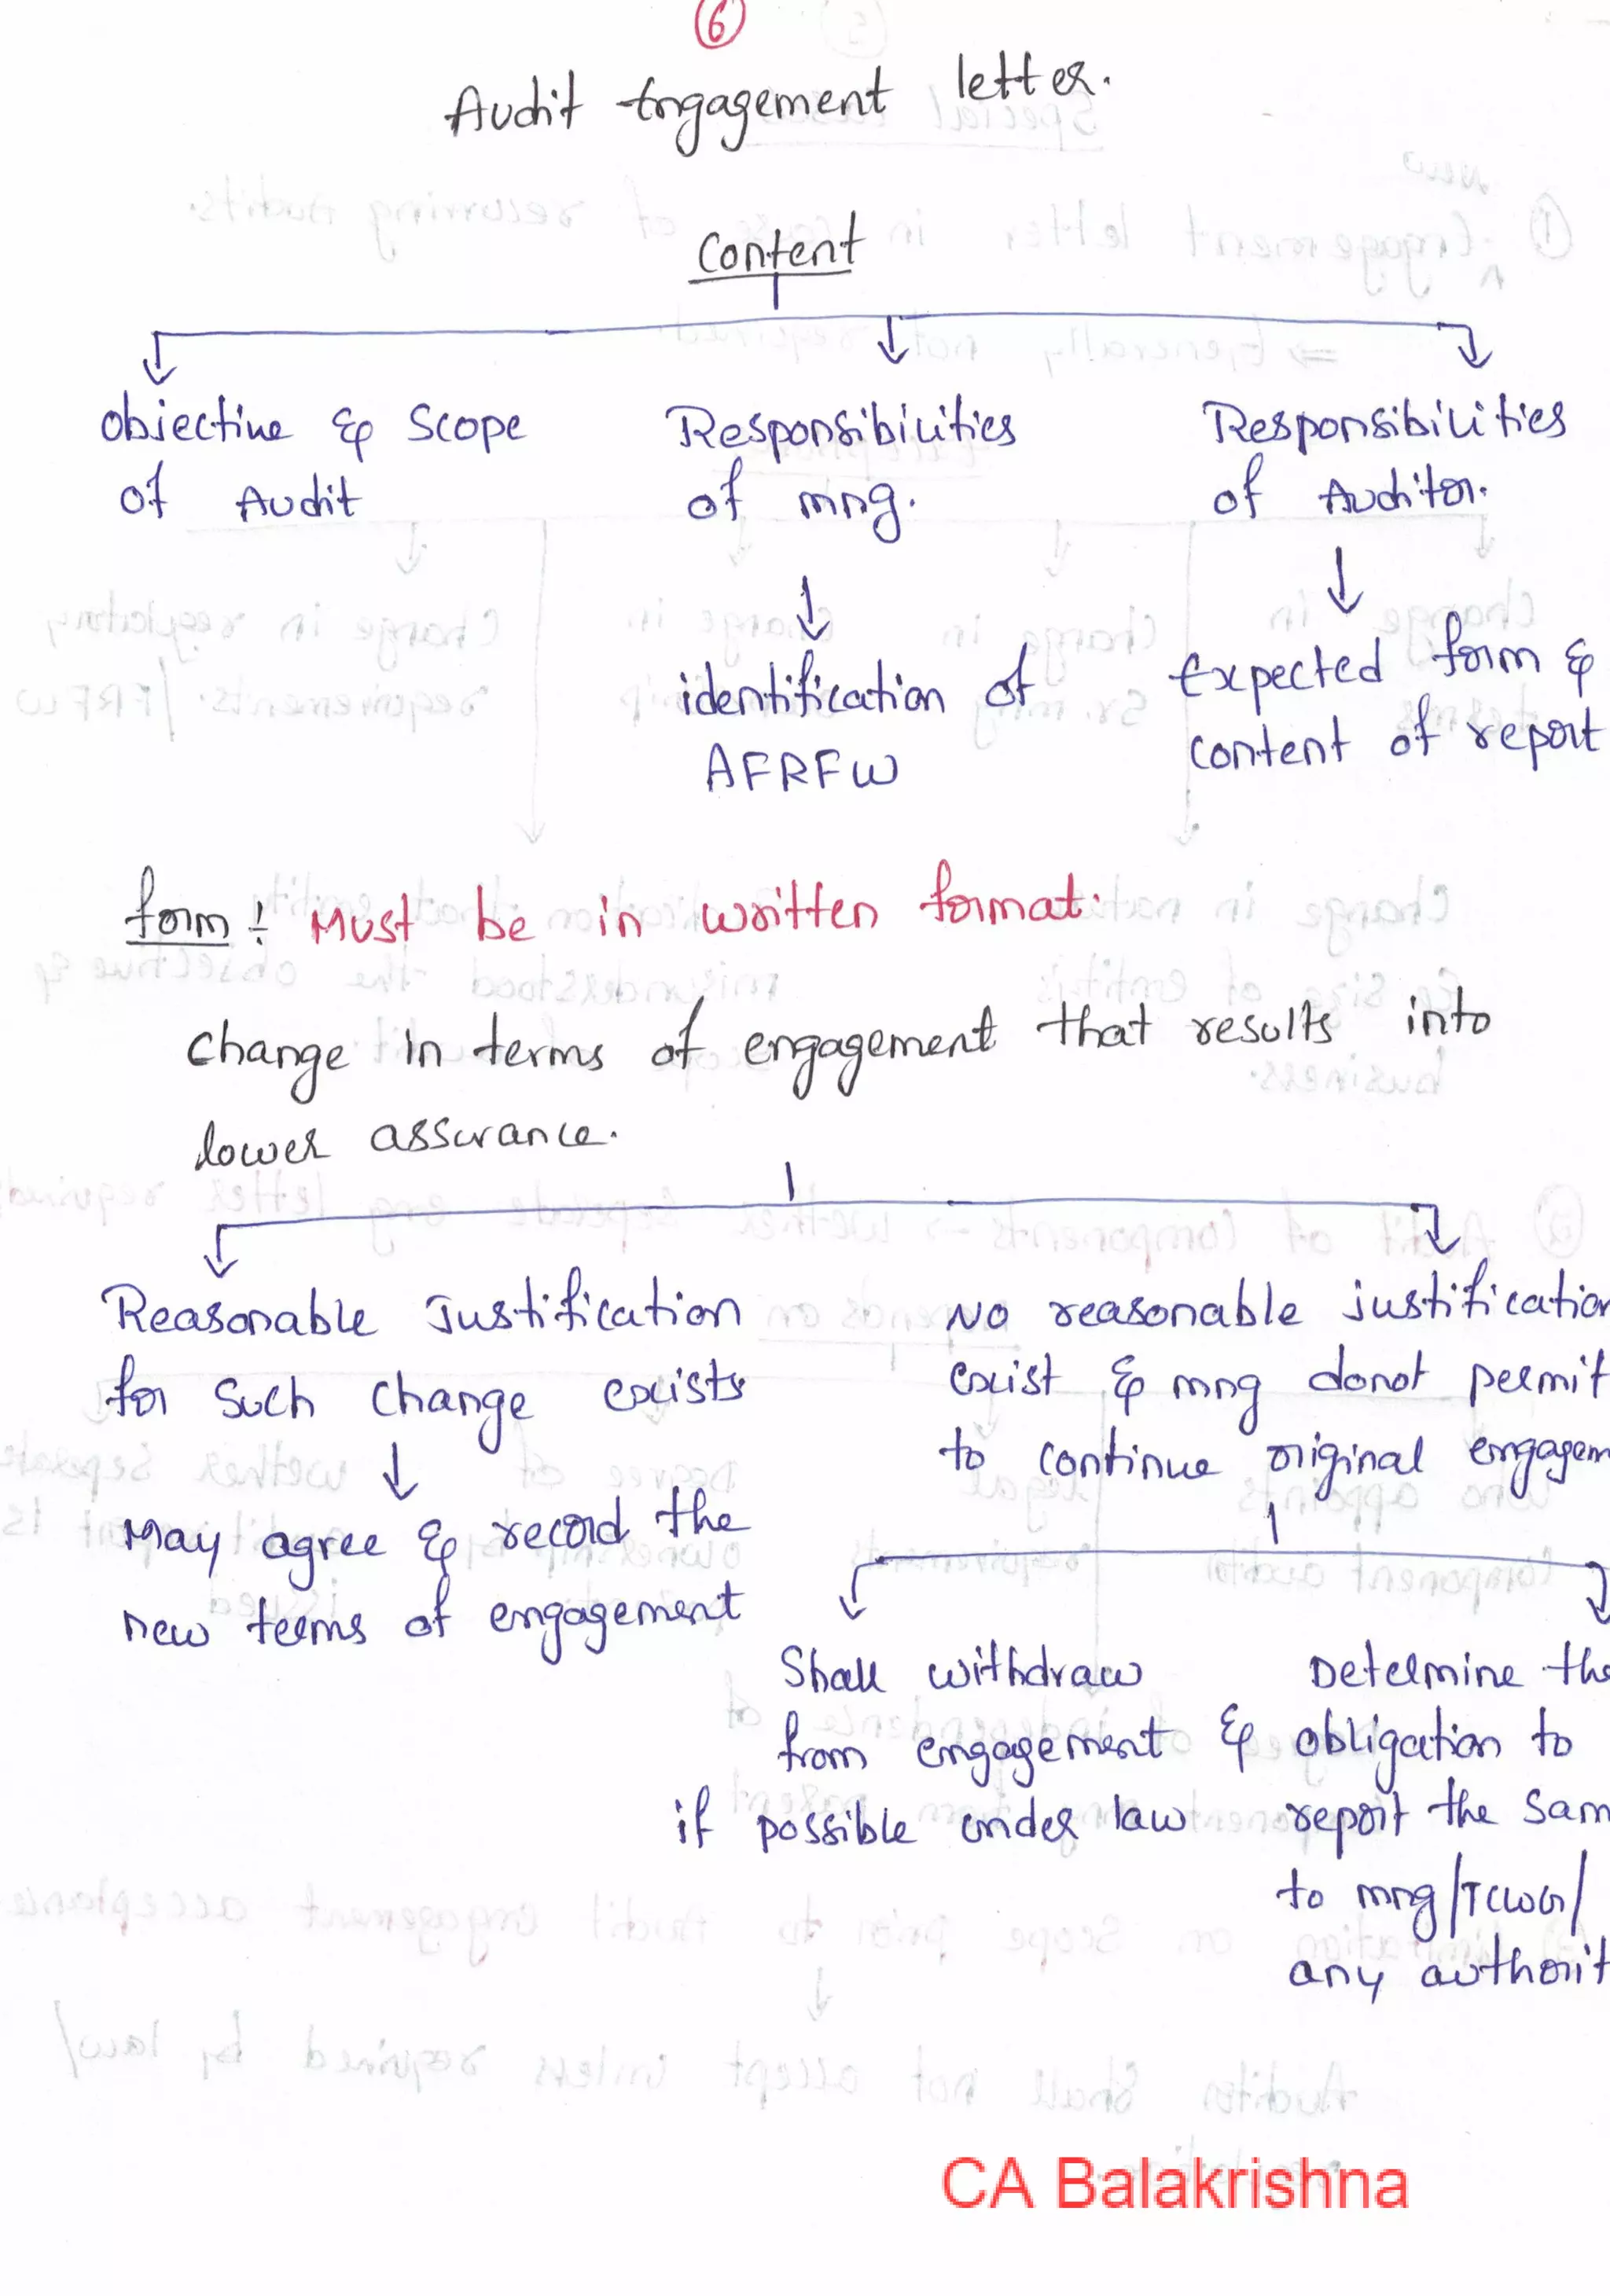 6
Audit Engagement letter.
Content
Objective & Scope of Audit
Responsibilities of mng.
Responsibilities of Auditor.
identification of AFRFW
Expected form & content of report
form : Must be in written format.
Change in terms of engagement that results into
lower assurance.
Reasonable Justification
for such change exists
May agree & record the
new terms of engagement
No reasonable justification
exist & mng donot permit
to continue original engagem
Shall withdraw
from engagement &
if possible under law
Determine the
obligation to
report the sam
to mng/TCWG/
any authorit
CA Balakrishna